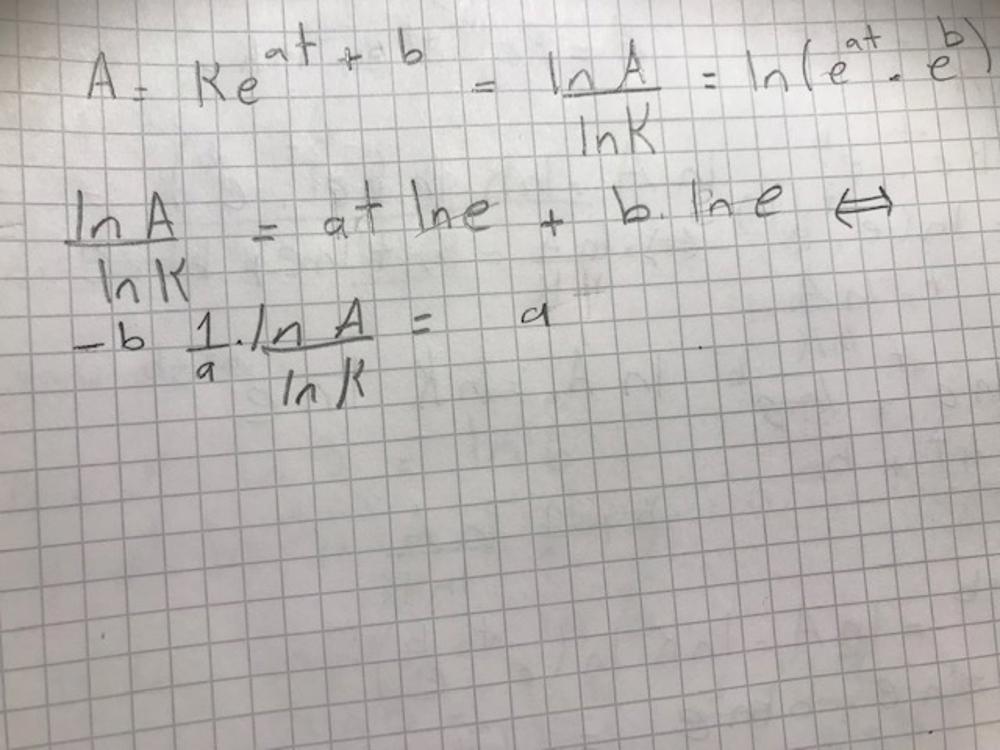 A = Ke^{at + b} = \frac{ln A}{ln K} = ln(e^{at} · e^{b})
\frac{ln A}{ln K} = at ln e + b · ln e ⇔
-b \frac{1}{a} · \frac{ln A}{ln K} = a